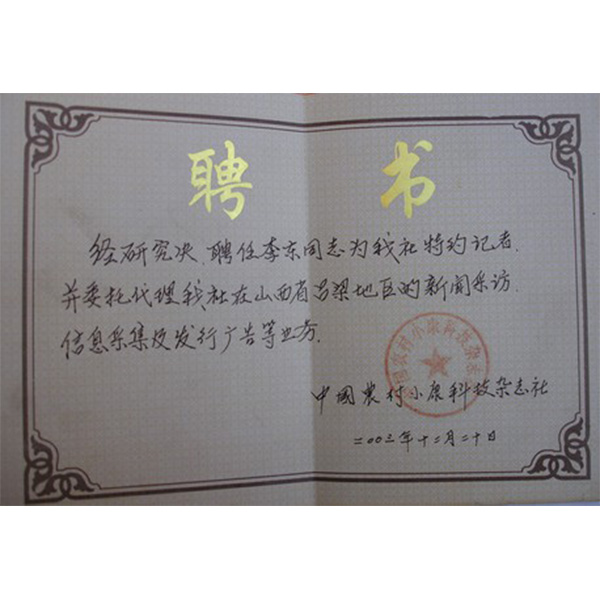 聘书
经研究决、聘任李东同志为我社特约记者、
并委托代理我社在山西省吕梁地区的新闻采访、
信息采集及发行广告等业务.
中國農村小康科技杂志社
二00三年十二月二十日